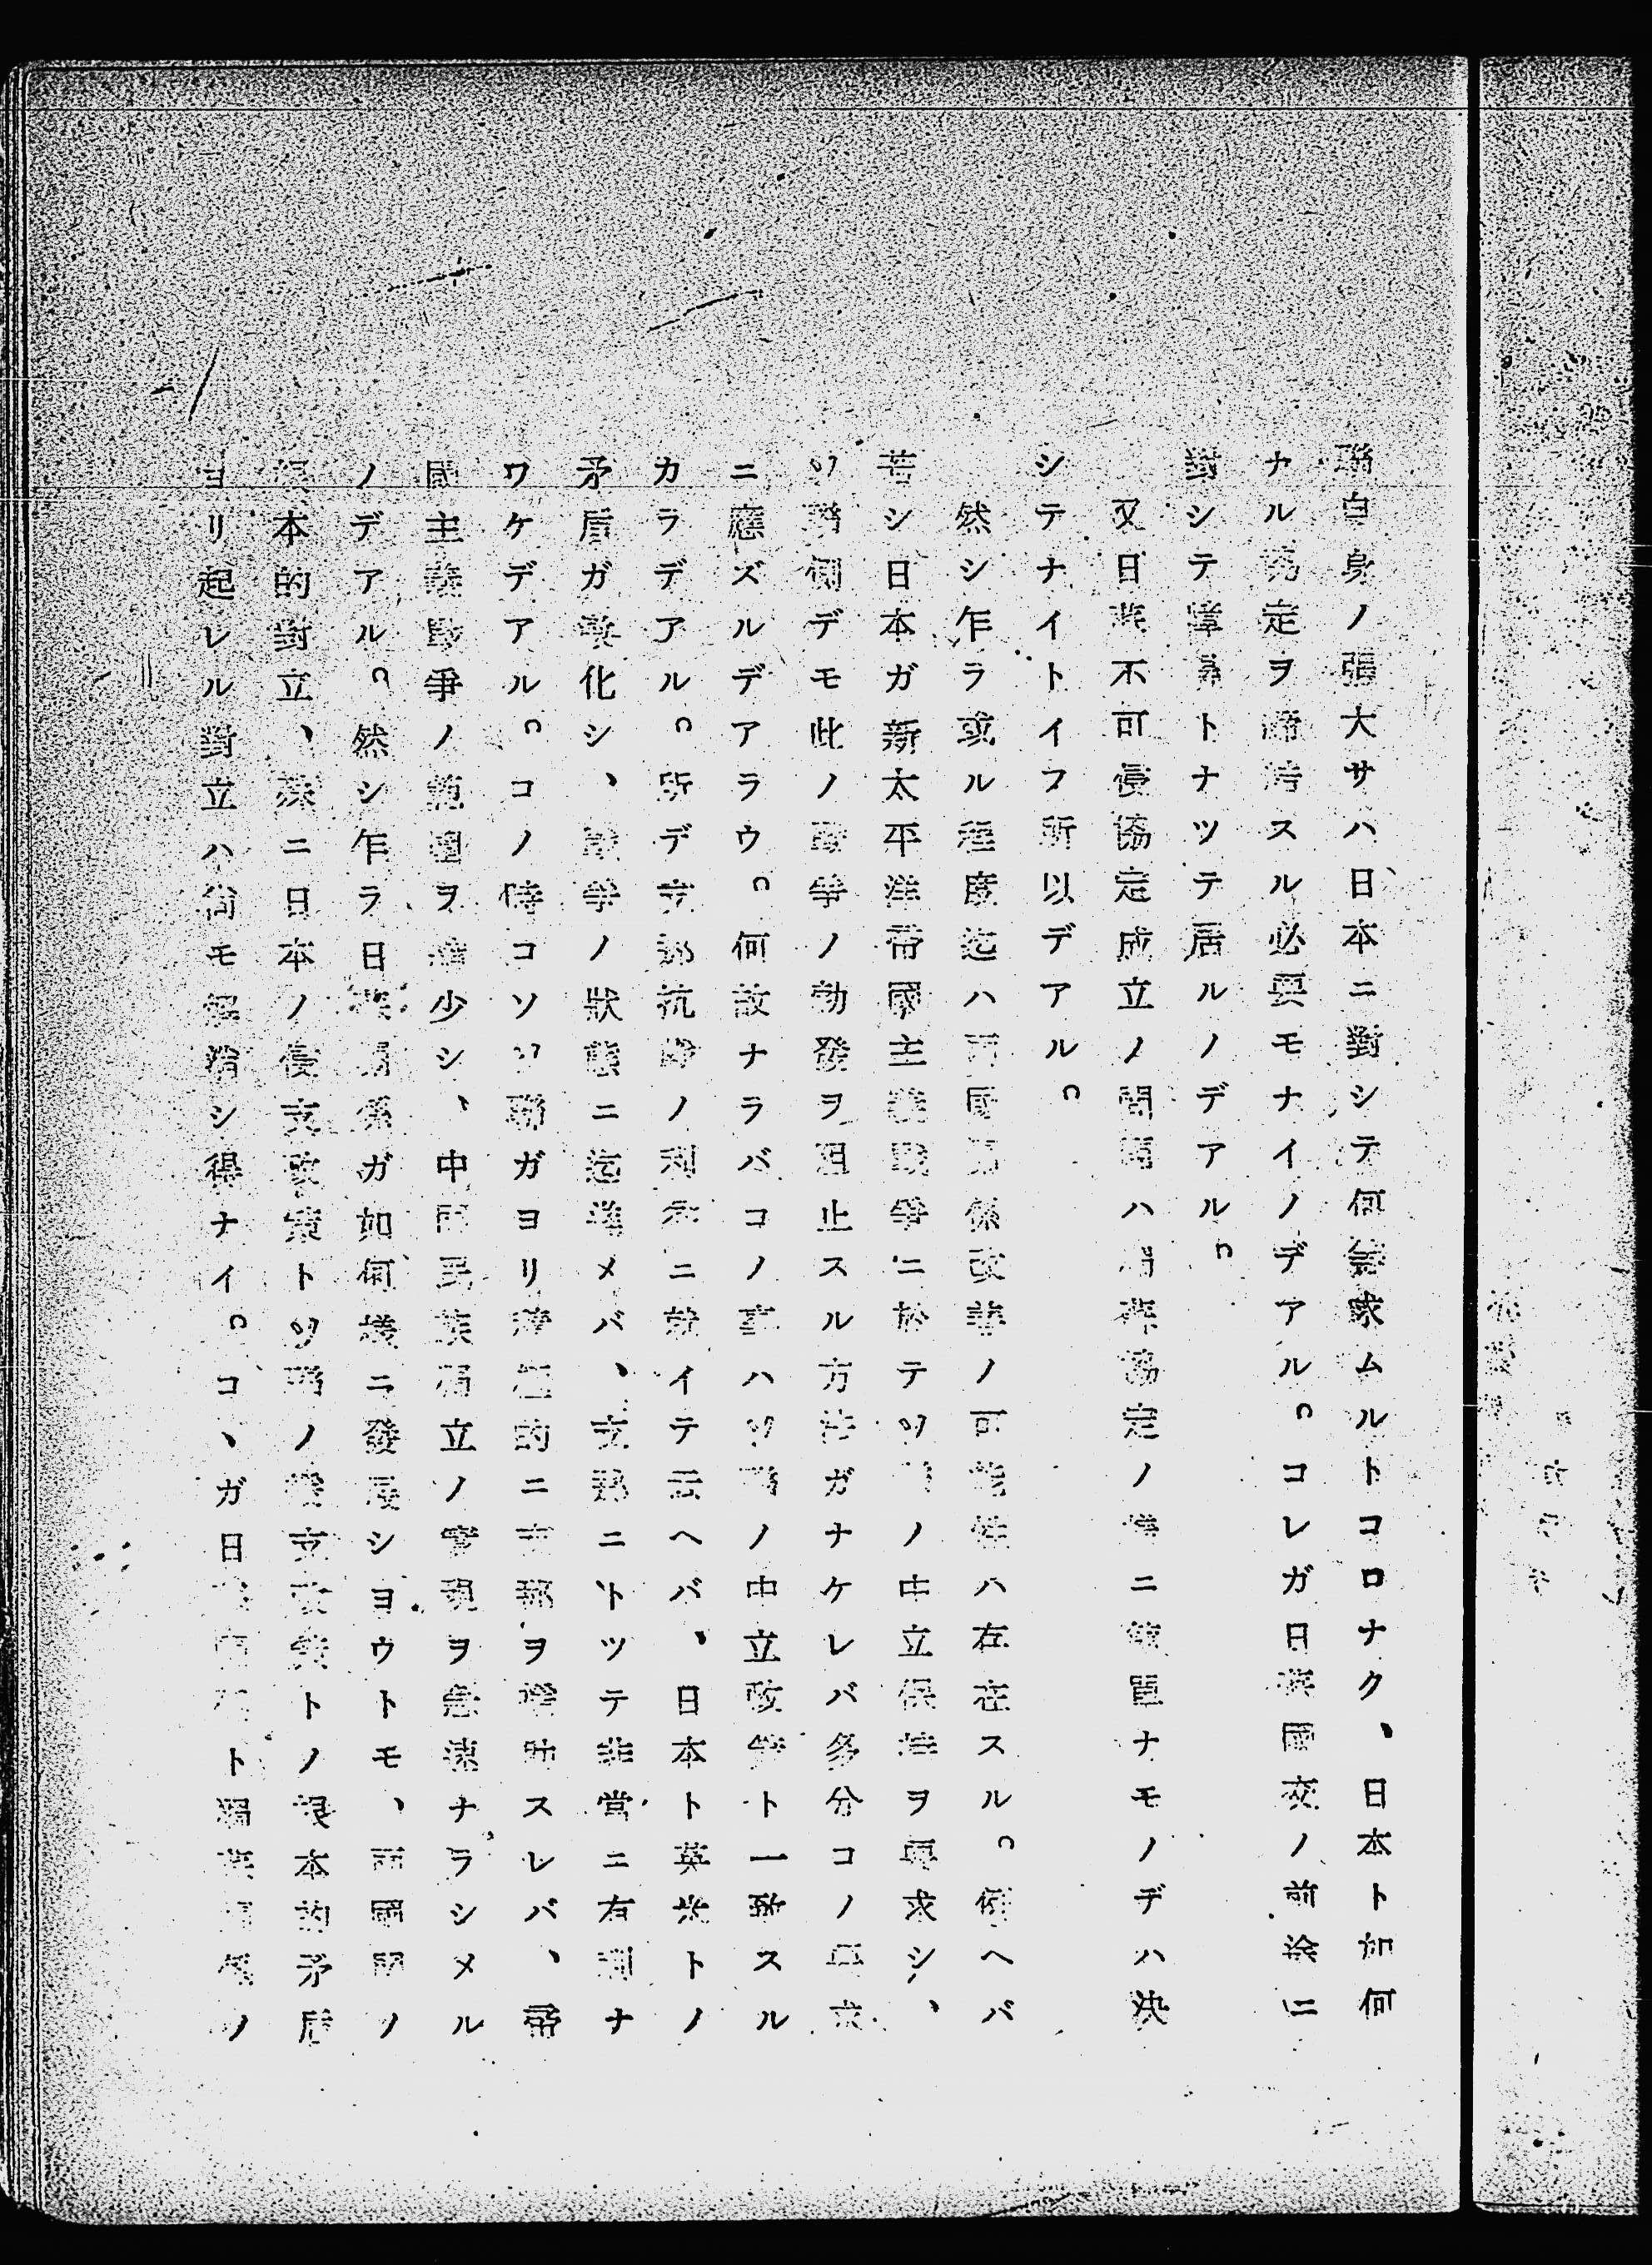 聯自身ノ強大サハ日本ニ對シテ何等求ムルトコロナク、日本ト如何
ナル協定ヲ締結スル必要モナイノデアル。コレガ日蘇國交ノ前途ニ
對シテ障碍トナツテ居ルノデアル。
又日蘇不可侵協定成立ノ問題ハ通商協定ノ樣ニ簡單ナモノデハ決
シテナイトイフ所以デアル。
然シ乍ラ或ル程度迄ハ兩國關係改善ノ可能性ハ存在スル。例ヘバ
若シ日本ガ新太平洋帝國主義戰爭ニ於テソ聯ノ中立保持ヲ要求シ、
ソ聯側デモ此ノ戰爭ノ勃發ヲ阻止スル方法ガナケレバ多分コノ要求
ニ應ズルデアラウ。何故ナラバコノ事ハソ聯ノ中立政策ト一致スル
カラデアル。所デ支那抗戰ノ利害ニ就イテ云ヘバ、日本ト英米トノ
矛盾ガ激化シ、戰爭ノ狀態ニ迄進メバ、支那ニトツテ非常ニ有利ナ
ワケデアル。コノ時コソソ聯ガヨリ積極的ニ支那ヲ援助スレバ、帝
國主義戰爭ノ範圍ヲ減少シ、中國民族獨立ノ實現ヲ急速ナラシメル
ノデアル。然シ乍ラ日蘇關係ガ如何樣ニ發展シヨウトモ、兩國間ノ
根本的對立、殊ニ日本ノ侵支政策トソ聯ノ援支政策トノ根本的矛盾
ヨリ起レル對立ハ尙モ解消シ得ナイ。コヽガ日ト獨蘇關係ノ